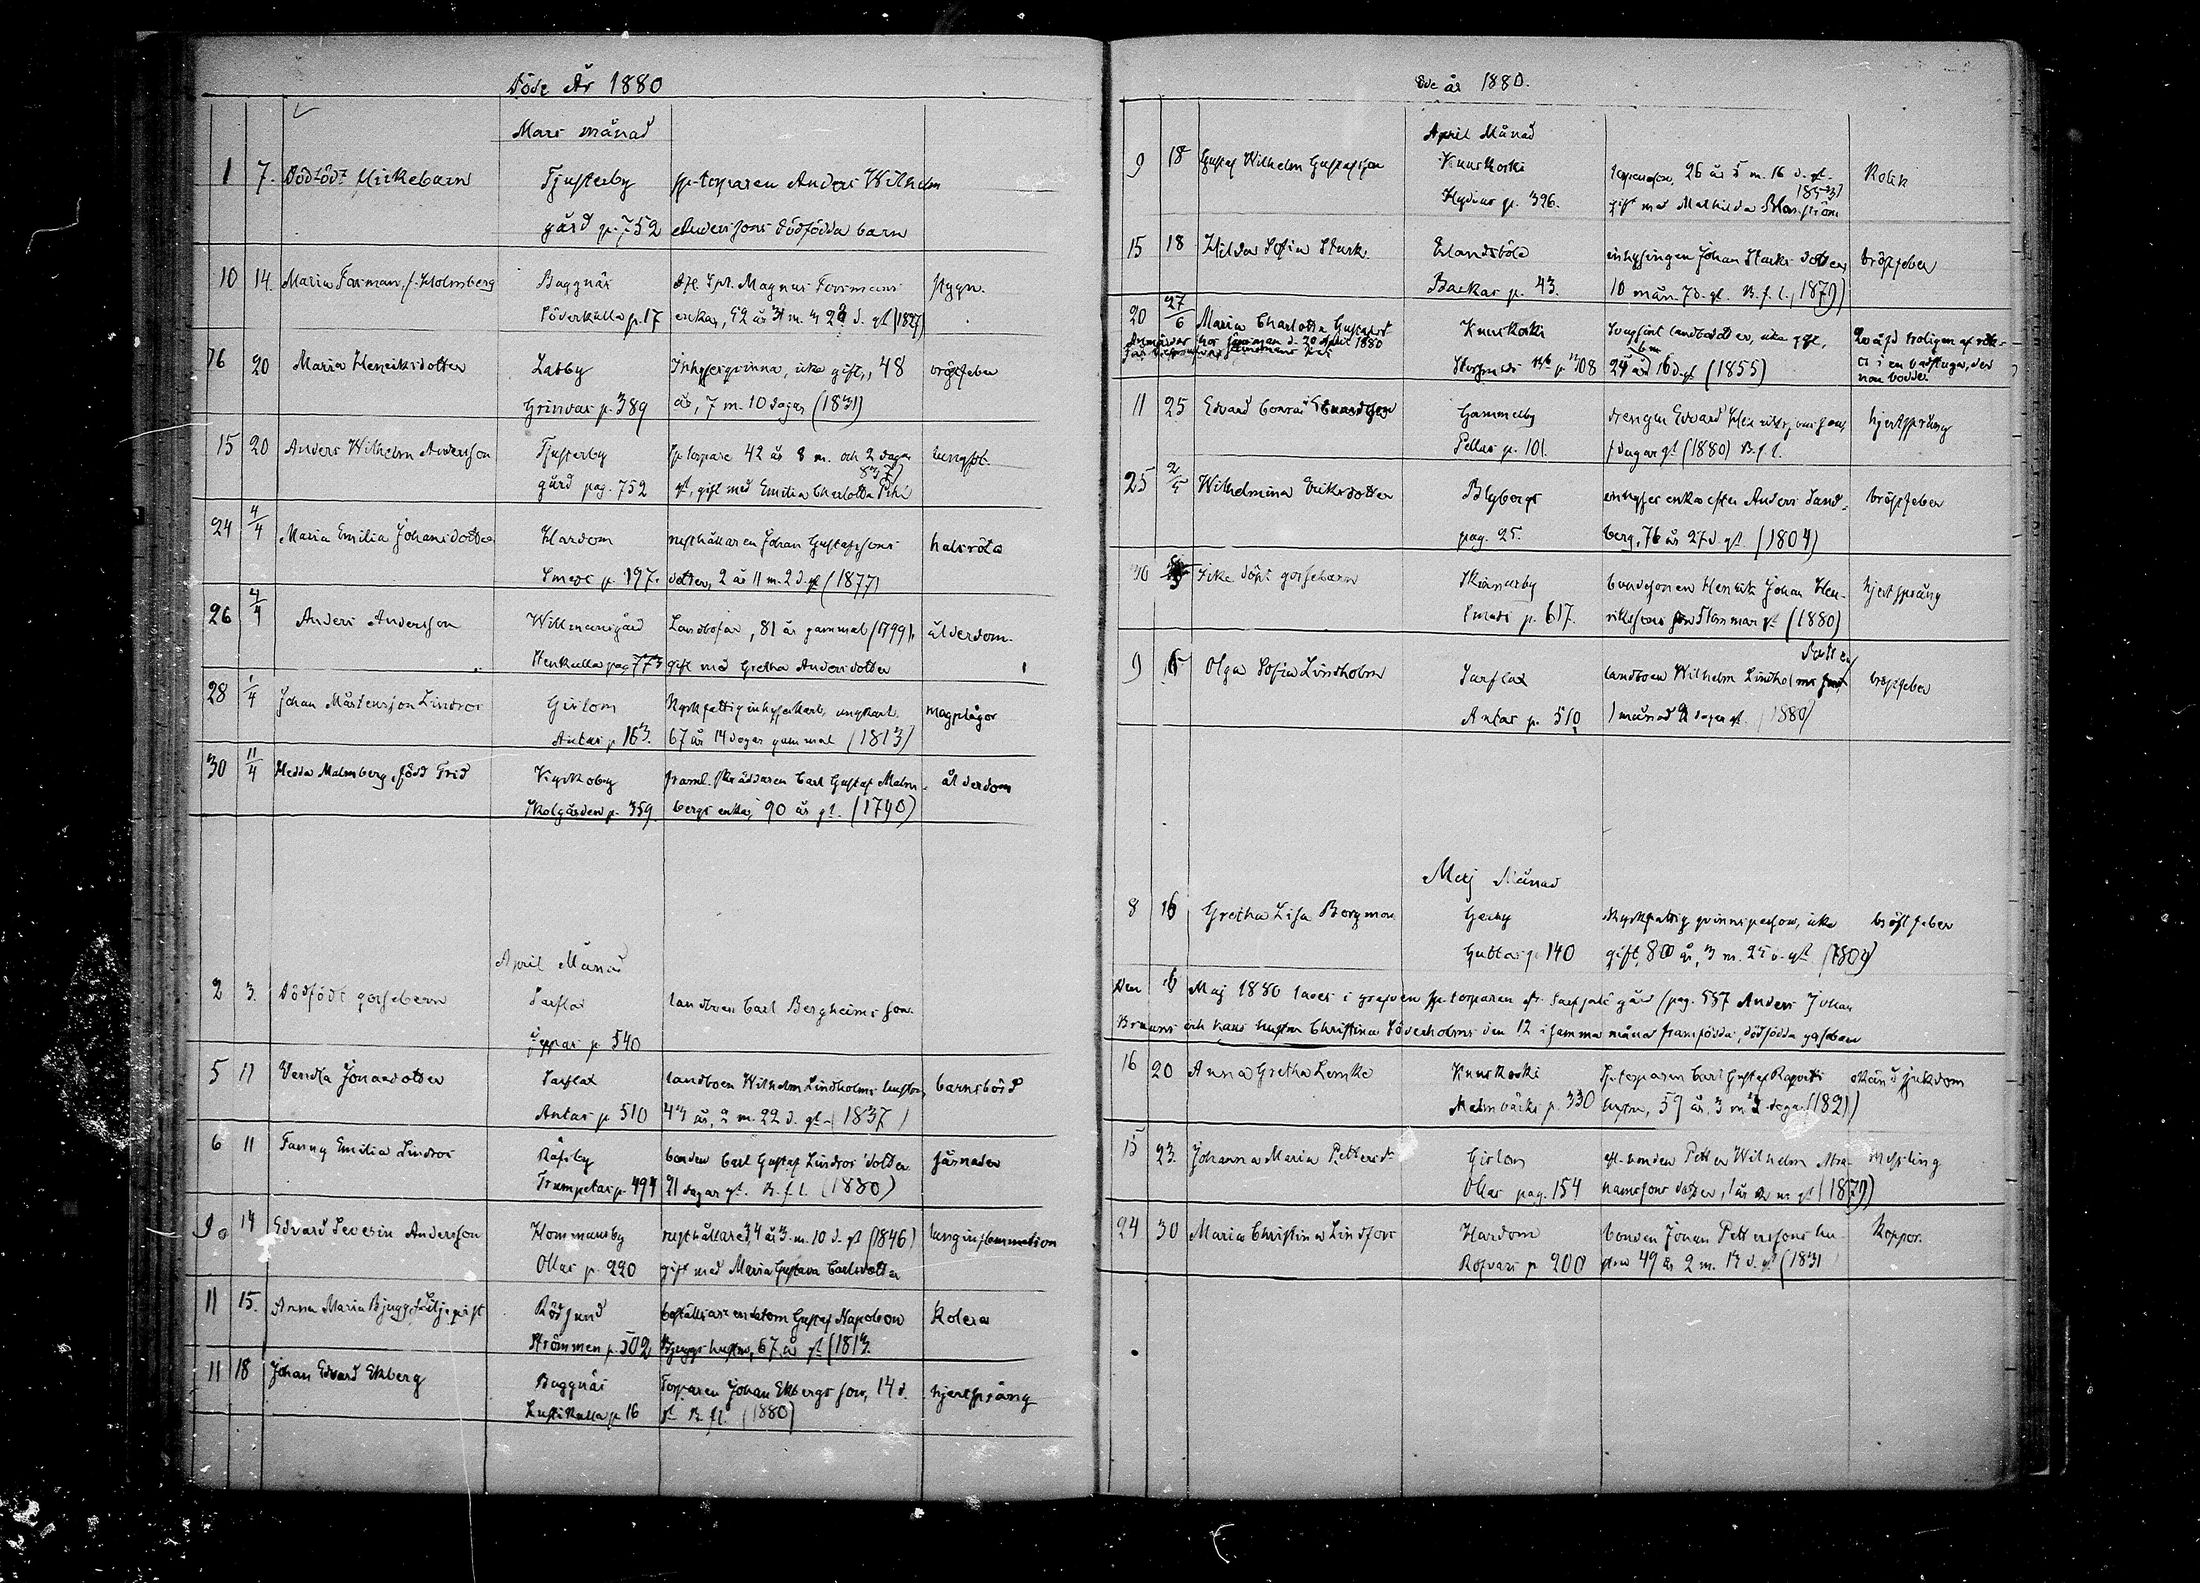 Döde År 1880
Mars månad
1 7. Dödfödt flickebarn Tjusterby sp.torparen Anders Wilhelm
gård p. 752 Anderssons dödfödda barn
10 14. Maria Forsman, f. Holmberg Baggnäs Magnus Forsmans
Söderkulla p. 17 enka, 52 år
16 20 Maria Henriksdotter Labby Inhysesqvinna, icke gift, 48 bröstfeber
Grinvas p. 389 år, 7 m. 10 dagar (1831)
15 20 Anders Wilhelm Andersson Tjusterby sp torpare 42 år 8 m. och 2 dagar lungsot.
gård pag. 752 gl, gift med Emilia Charlotta Pihl
24 4/4 Maria Emilia Johansdotter Hardom rusthållaren Johan Gustafssons halsröta
p. 197. dotter, 2 år 11 m. 2 d. gl (1877)
26 4/4 Anders Andersson Willmansgård Landbofar, 81 år gammal (1799), ålderdom.
Stenkulla pag 773 gift med Gretha Andersdotter
28 1/4 Johan Mårtensson Lindros Girlom Kyrkfattig inhysekarl, ungkarl magplågor
Antas p 163. 67 år 14 dagar gammal (1813)
30 11/4 Hedda Malmberg, född Grid Kyrkoby framl. skräddaren Carl Gustaf Malm- ålderdom
Skolgården p. 359 bergs enka, 90 år gl. (1790)
April Månad
2 3. Dödfödt gossebarn Sarflax landboen Carl Bergheims son
Jeppas p 540
5 11 Vendla Jonasdotter Sarflax landboen Wilhelm Lindholms hustru, barnsbörd
Antas p 510 43 år, 2 m. 22 d. gl. (1837)
6 11 Fanny Emilia Lindros Räfsby bonden Carl Gustaf Lindros' dotter
Trumpetas p. 494 21 dagar gl. B. f. l. (1880)
9 14 Edvard Severin Andersson Hommansby rusthållare, 34 år 3 m. 10 d. gl (1846) lunginflammation
Ollas p. 220 gift med Maria Gustava Carlsdotter
11 15. Anna Maria Bjugg f. Liljeqvist Rödsund Gustaf Napoleon Kolera
Strömmen p. 502 Bjuggs hustru, 67 år gl (1813
11 18 Johan Edvard Ekberg Baggnäs Torparen Johan Ekbergs son, 14 d. hjertsprång
p 16 gl B. f. l. (1880)
år 1880.
April Månad
9 18 Gustaf Wilhelm Gustafsson Kuuskoski 26 år 5 m. 16 d. gl. Kolik
1853)
Hydins p. 326. gift med Mathilda Blomström
15 18 Hilda Sofia Stark Erlandsböle inhysingen Johan Starks dotter bröstfeber
Backas p. 43. 10 mån. 7 d. gl. B. f. l., 1879)
20 27/6 Maria Charlotta Gustafsd Kuuskoski landbodotter, icke gift,
d. 20 April 1880
24 år 16 d. gl (1855)
11 25 Edvard Conrad Gammelby drengen Edvard hjertsprång
Pellas p. 101. dagar gl (1880) B. f. l.
25 2/5 Wilhelmina Eriksdotter Blybergs inhyses enka efter Anders Sand- bröstfeber
pag. 25. berg, 76 år 27 d. gl. (1804)
30 Icke döpt gossebarn Skinnarby bondesonen Henrik Johan Hen- hjertsprång
Smeds p. 617. rikssons gl (1880)
dotter
9 Olga Sofia Lindholm Sarflax landboen Wilhelm Lindholms bröstfeber
Antas p. 510 1 månad 2 dagar gl. (1880)
Maj Månad
8 16 Gretha Lisa Bergman Garby Kyrkfattig qvinnsperson, icke bröstfeber
Gubbas p 140 gift, 80 år, 3 m. 25 d. gl
Den 6 Maj 1880 lades i grafven sp.torparen fr. Sarfsalö gård (pag. 557 Anders Johan
Bruuns och hans hustru Christina Söderholms den 12 i samma månad framfödda, dödfödda gossebarn
16 20 Anna Gretha Lemke Kuuskoski Sp.torparen Carl Gustaf okänd sjukdom
Malmbäcks p. 330 hustru, 59 år, 3 m
15 23. Johanna Maria Pettersd. Girlom Petter Wilhelm Abra- Messling
Ollas pag. 154 hamssons dotter, 1 år gl (1879)
24 30 Maria Christina Lindfors Hardom bonden Johan Petterssons hu- Koppor.
Rofvars p 200 stru 49 år 2 m. 13 d. gl (1831